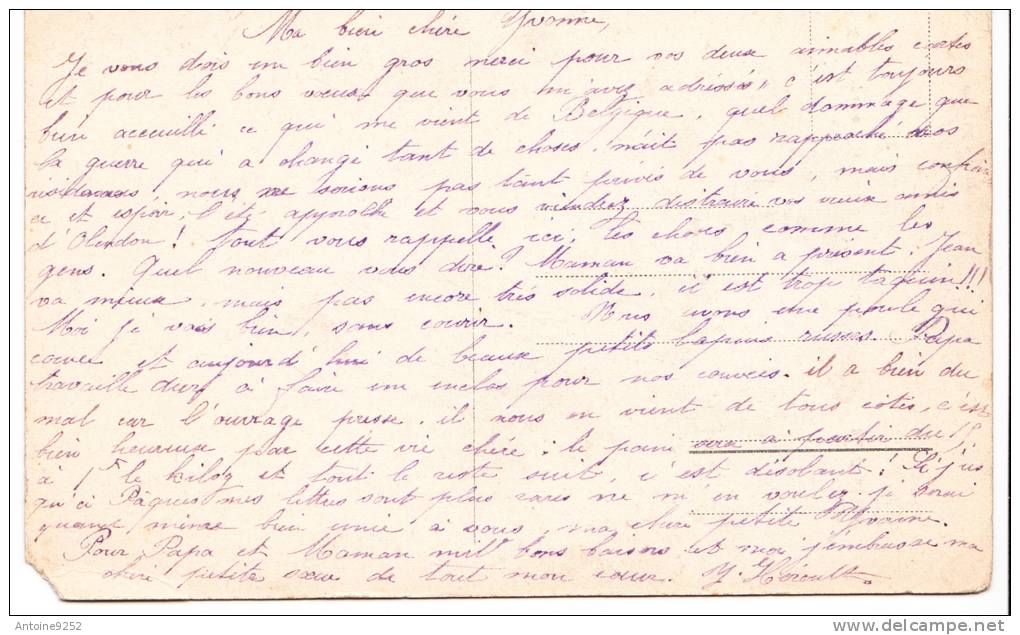 Ma bien chère Yvonne,
Je vous dois un bien gros merci pour vos deux aimables cartes
et pour les bons vœux que vous m'avez adressés, c'est toujours
bien accueilli ce qui me vient de Belgique, quel dommage que
la guerre qui a changé tant de choses n'ait pas rapproché nos
résidences nous ne serions pas tant privés de vous, mais confian
ce et espoir, l'été approche et vous viendrez distraire vos vieux amis
d'Olendon! tout vous rappelle ici, les choses comme les
gens. Quel nouveau vous dire? Maman va bien à présent. Jean
va mieux, mais pas encore très solide, il est trop taquin!!!
Moi je vais bien, sans courir. Nous avons une poule qui
couve et aujourd'hui de beaux petits lapins russes. Papa
travaille dur à faire un enclos pour nos couvées. il a bien du
mal car l'ouvrage presse, il nous en vient de tous côtés, c'est
bien heureux par cette vie chère: le pain sera à partir du 15
à 1f le kilog et tout le reste suit, c'est désolant! Si jus
qu'à Pâques mes lettres sont plus rares ne m'en voulez. je serai
quand même bien unie à vous, ma chère petite Yvonne.
Pour Papa et Maman mille bons baisers et moi j'embrasse ma
chère petite sœur de tout mon cœur. Y. Héroult.
Antoine9252
delcampe.net